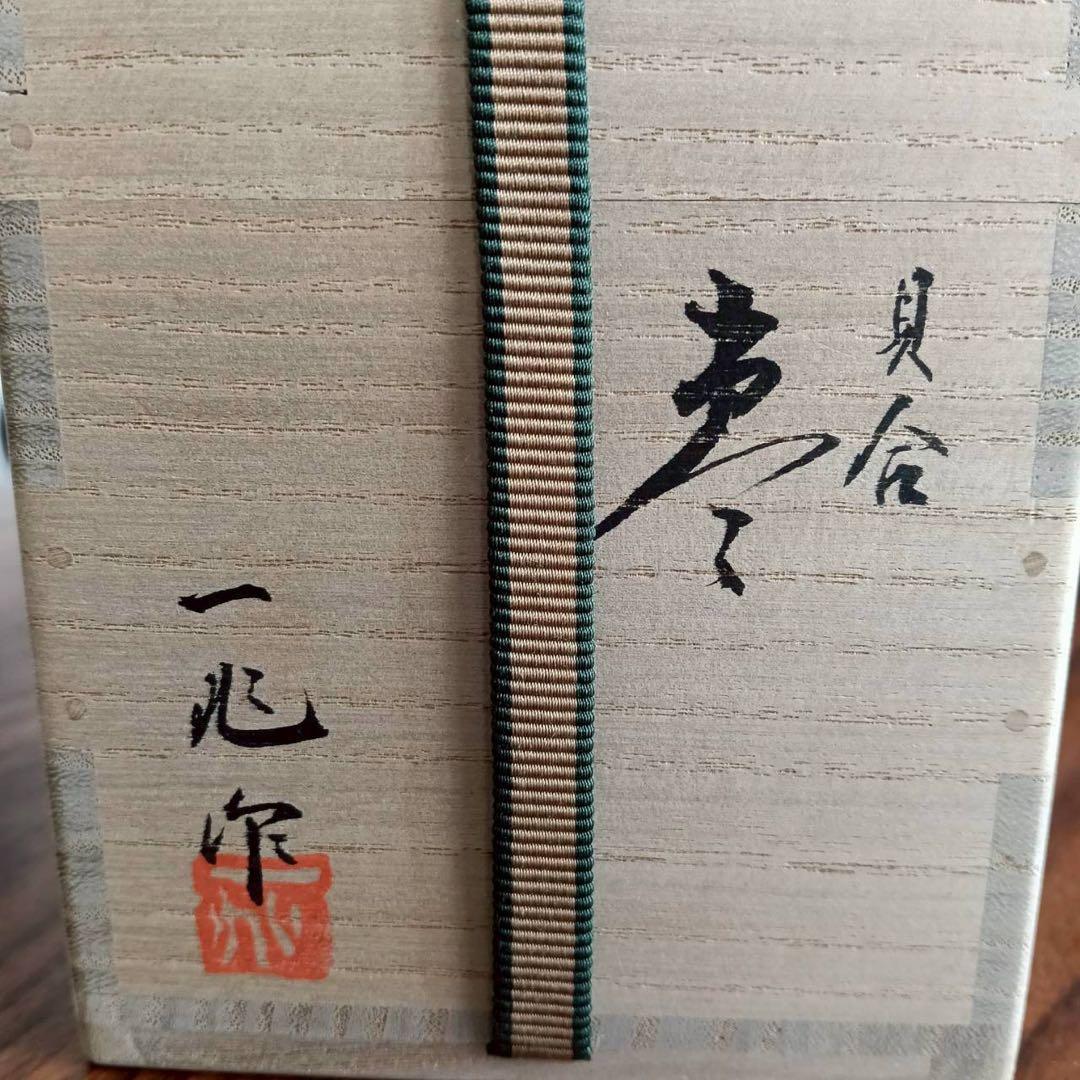 貝合
棗
一兆作